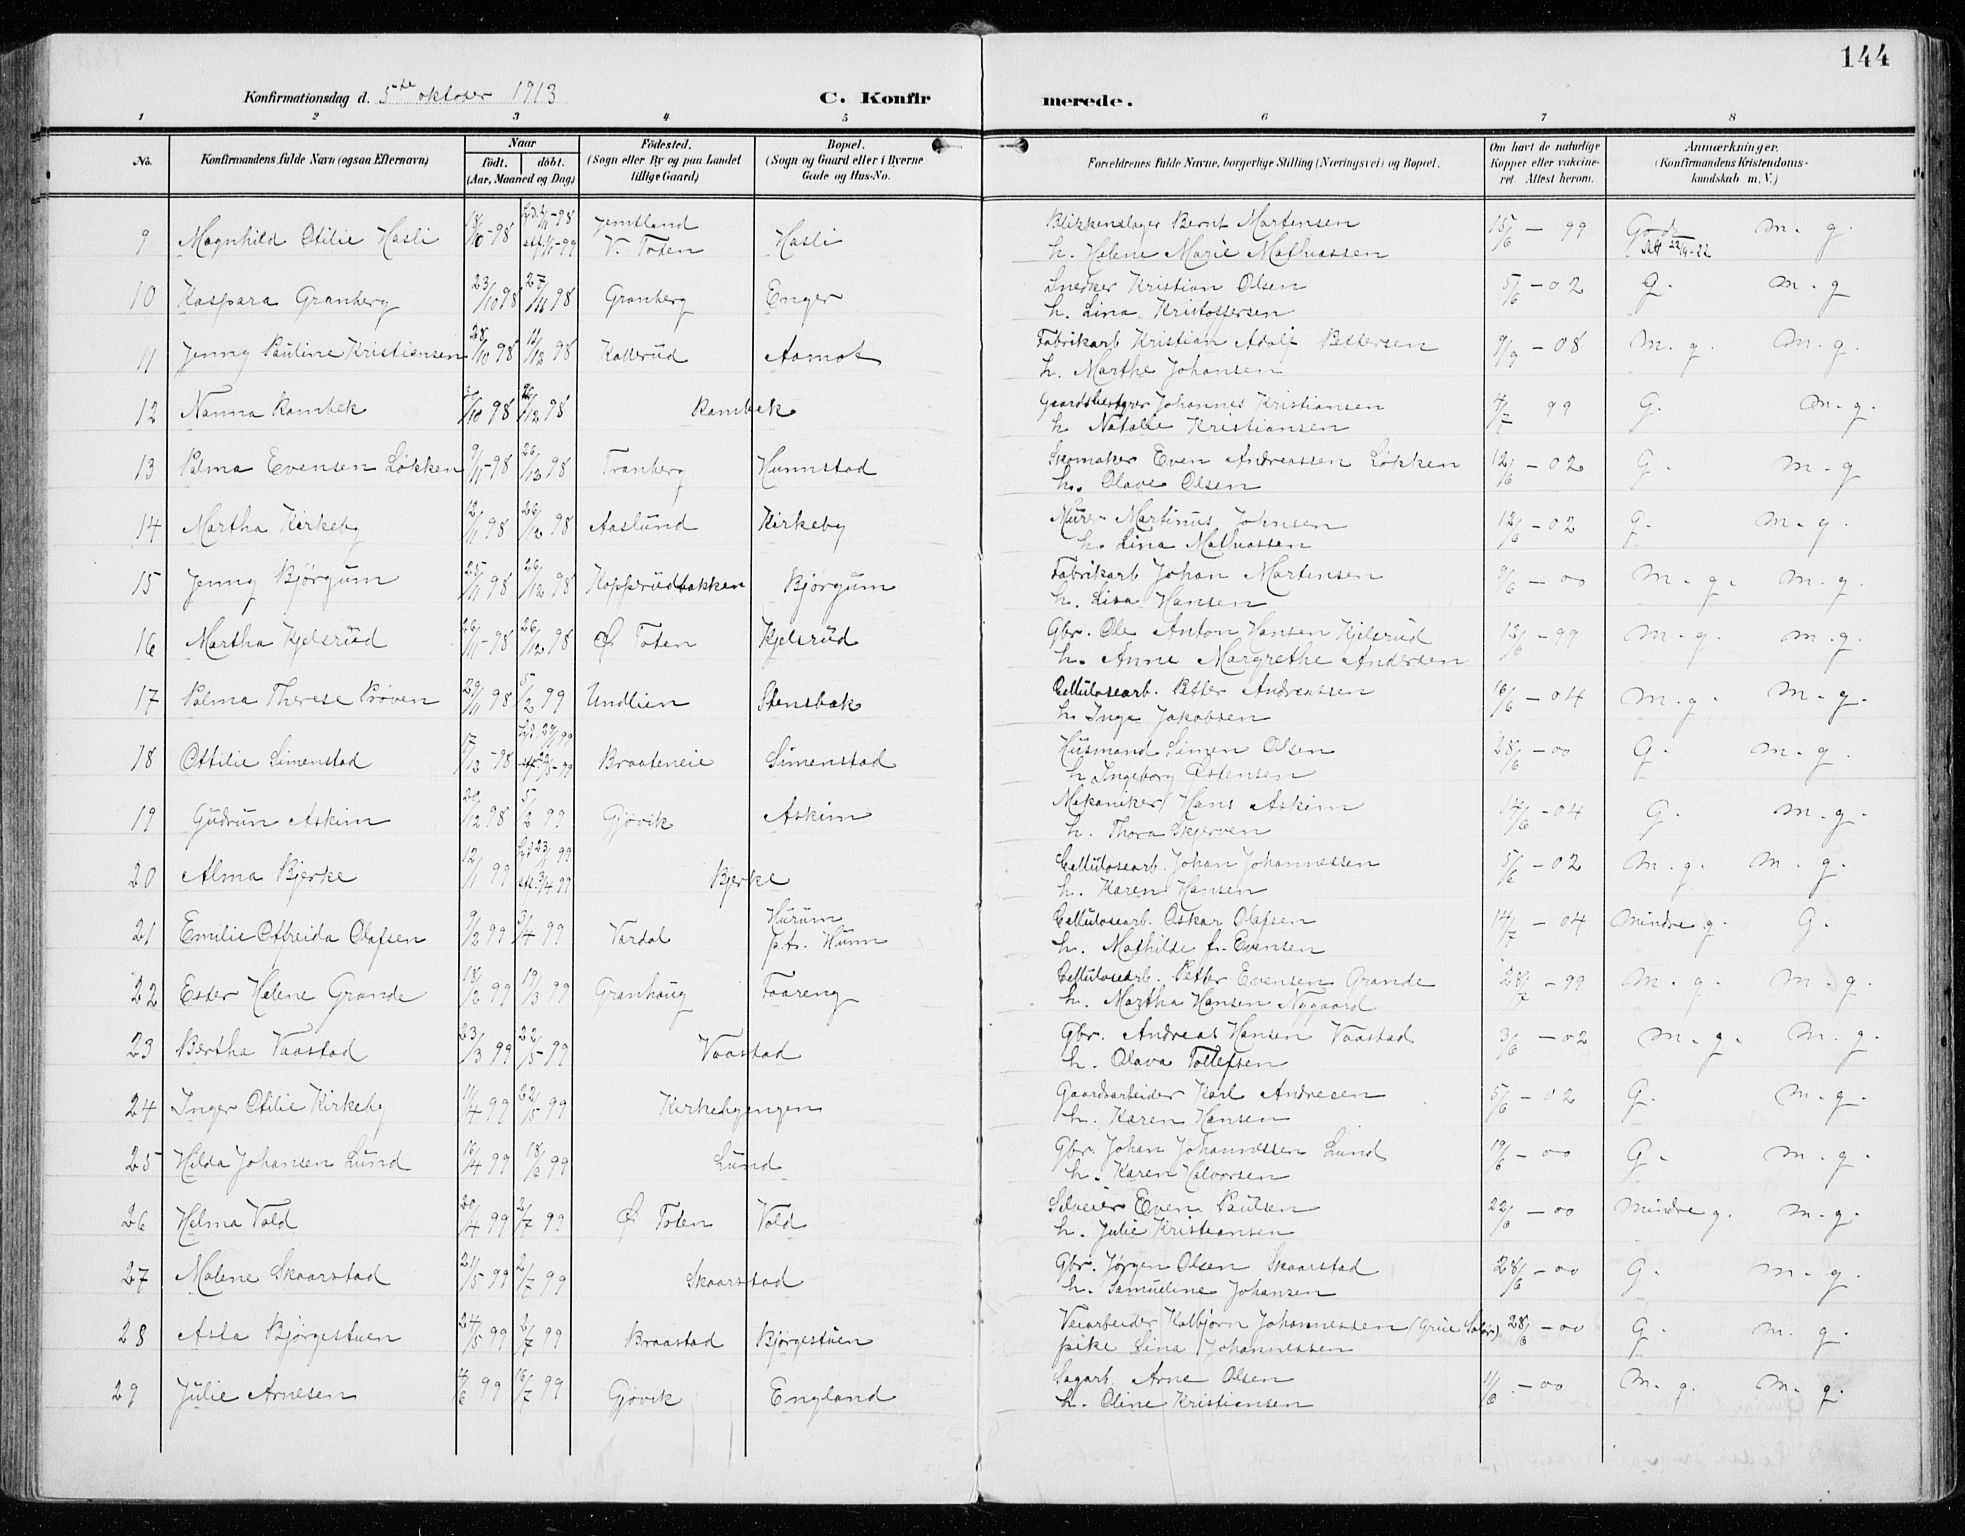 144
Konfirmationsdag d. 5te oktober 1913 C. Konfirmerede.
1 2 3 4 5 6 7 8
No. Konfirmandens fulde Navn (ogsaa Efternavn) Naar født. døbt. (Aar, Maaned og Dag) Fødested. (Sogn eller By og paa Landet tillige Gaard) Bopæl. (Sogn og Gaard eller i Byerne Gade og Hus-No. Forældrenes fulde Navne, borgerlige Stilling (Næringsvei) og Bopæl. Om havt de naturlige Kopper eller vaksineret Attest herom. Anmærkninger. (Konfirmandens Kristendomskundskab m. V.)
9 Magnhild Otilie Hasli 18/10-98 Jemtland V. Toten Hasli Blikkenslager Bernt Martensen h. Helene Marie Mathiassen 15/6 - 99 God m. g.
10 Kaspara Granberg 23/10 98 27/11 98 Granberg Enger Snedker Kristian Olsen h. Lina Kristoffersen 5/6 - 02 G. m. g
11 Jenny Pauline Kristiansen 28/10 98 11/12 98 Kallerud Aamot Fabrikarb Kristian Adolf Pettersen h. Marthe Johansen 9/9 - 08 m. g. m. g.
12 Nanna Rambek 30/10 98 26/12 98 Rambek Gaardsbestyrer Johannes Kristiansen h. Natalie Kristiansen 4/7 99 G. m. g.
13 Palma Evensen Løkken 9/11-98 26/12 98 Tranberg Hunnstad Skomaker Even Andreassen Løkken h. Olave Olsen 12/6 - 02 G. m. g
14 Martha Kirkeby 12/11 98 26/12 98 Aaslund Kirkeby Murer Martinus Johnsen h. Lina Mathiassen 12/6 - 02 G. m. g.
15 Jenny Bjørgum 25/11 98 26/12 98 Kopperudbakken Bjørgum Fabrikarb Johan Martensen h. Lisa Hansen 9/6 - 00 m. g. m. g.
16 Martha Kjelsrud 26/11-98 26/12 98 Ø Toten Kjelsrud Gbr. Ole Anton Hansen Kjelsrud h. Anne Margrethe Andersen 12/6 - 99 m. g. m. g.
17 Palma Therese Prøven 29/11 98 5/2 99 Undlien Stensbak Cellulosearb. Petter Andreassen h. Inga Jakobsen 16/6 - 04 m. g. m. g.
18 Ottilie Simenstad 17/12-98 Braateneie Simenstad Husmand Simen Olsen h Ingeborg Østensen 28/6 - 00 G. m. g.
19 Gudrun Askim 29/12 98 5/2 99 Gjøvik Askim Mekaniker Hans Askim h. Thora Skjerven 14/6 - 04 G. m. g.
20 Alma Bjerke 12/1 99 Bjerke Cellulosearb. Johan Johannessen h. Karen Hansen 5/6 - 02 m. g. m. g.
21 Emilie Otteida Olafsen 9/2 99 3/4 99 Vardal Hurum p.t. Hunn Cellulosearb. Oskar Olafsen h. Mathilde f. Evensen 14/7 - 04 mindre g. G.
22 Ester Helene Grande 18/2 99 19/3 99 Granhaug Faareng Cellulosearb. Petter Evensen Grande h. Martha Hansen Nygaard 28/7 - 99 m. g. m. g.
23 Bertha Vaastad 23/3 99 22/5-99 Vaastad Gbr. Andreas Hansen Vaastad h. Olava Tollefsen 3/6 - 02 m. g. m. g.
24 Inger Otilie Kirkeby 11/4 99 22/5 99 Kirkebyengen Gaardsarbeider Karl Andresen h. Karen Hansen 5/6 - 02 G. m. g.
25 Hilda Johansen Lund 16/4 99 18/6 99 Lund Gbr. Johan Johannessen Lund h. Karen Halvorsen 19/6 - 00 G. m. g.
26 Helma Vold 20/4 99 2/7 99 Ø Toten Vold Selveier Even Paulsen h. Julie Kristiansen 22/6 - 00 mindre g. m. g.
27 Malene Skaarstad 21/5 99 2/7 99 Skaarstad Gbr. Jørgen Olsen Skaarstad h. Samueline Johansen 28/6 - 00 G. m. g.
28 Asta Bjørgestuen 24/5 99 2/7 99 Braastad Bjørgestuen Veiarbeider Kolbjørn Johannessen (Grue Solør) pike Lina Johannessen 28/6 - 00 G. m. g.
29 Julie Arnesen 4/6 99 16/7 99 Gjøvik England Sagarb. Arne Olsen h. Oline Kristiansen 11/6 - 00 m. g. m. g.